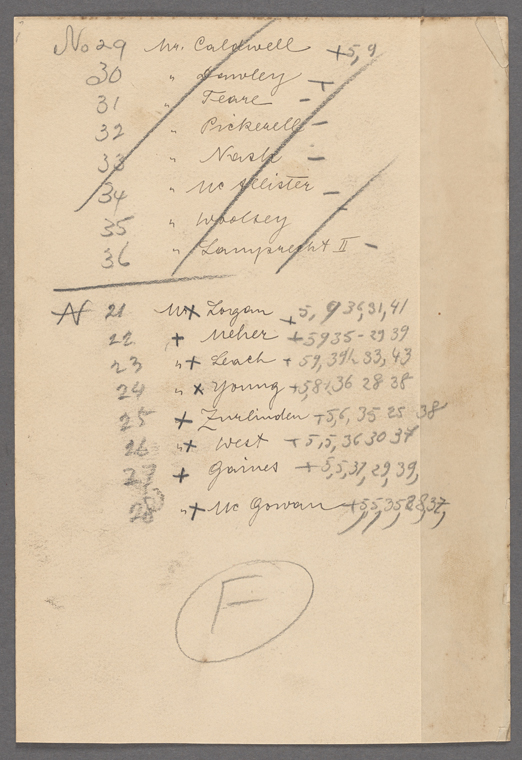 No 29 Mr. Caldwell +5,9
30 " Dawley +
31 " Feare -
32 " Pickerell -
33 " Nash -
34 " McAllister -
35 " Woolsey -
36 " Lamprecht II -
N 21 Mr x Logan +5, 9 36, 31, 41
22 + Meher +5935-29 39
23 " + Leach + 59, 39 33, 43
24 " x Young +5,8 36 28 38
25 + Zurlinden +5,6, 35 25 38
26 " x West +5,5, 36 30 37
27 + Gaines +5,5,37, 29, 39,
28 " + McGowan +5,5,35 28,37,
F